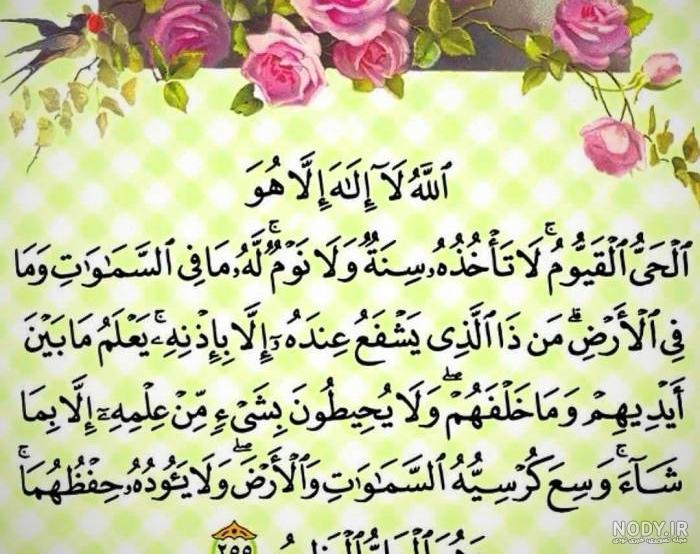 ٱللَّهُ لَآ إِلَٰهَ إِلَّا هُوَ
ٱلْحَىُّ ٱلْقَيُّومُ ۚ لَا تَأْخُذُهُۥ سِنَةٌ وَلَا نَوْمٌ ۚ لَّهُۥ مَا فِى ٱلسَّمَٰوَٰتِ وَمَا
فِى ٱلْأَرْضِ ۗ مَن ذَا ٱلَّذِى يَشْفَعُ عِندَهُۥٓ إِلَّا بِإِذْنِهِۦ ۚ يَعْلَمُ مَا بَيْنَ
أَيْدِيهِمْ وَمَا خَلْفَهُمْ ۖ وَلَا يُحِيطُونَ بِشَىْءٍ مِّنْ عِلْمِهِۦٓ إِلَّا بِمَا
شَآءَ ۚ وَسِعَ كُرْسِيُّهُ ٱلسَّمَٰوَٰتِ وَٱلْأَرْضَ ۖ وَلَا يَـُٔودُهُۥ حِفْظُهُمَا ۚ
وَهُوَ ٱلْعَلِىُّ ٱلْعَظِيمُ ٢٥٥
NODY.IR